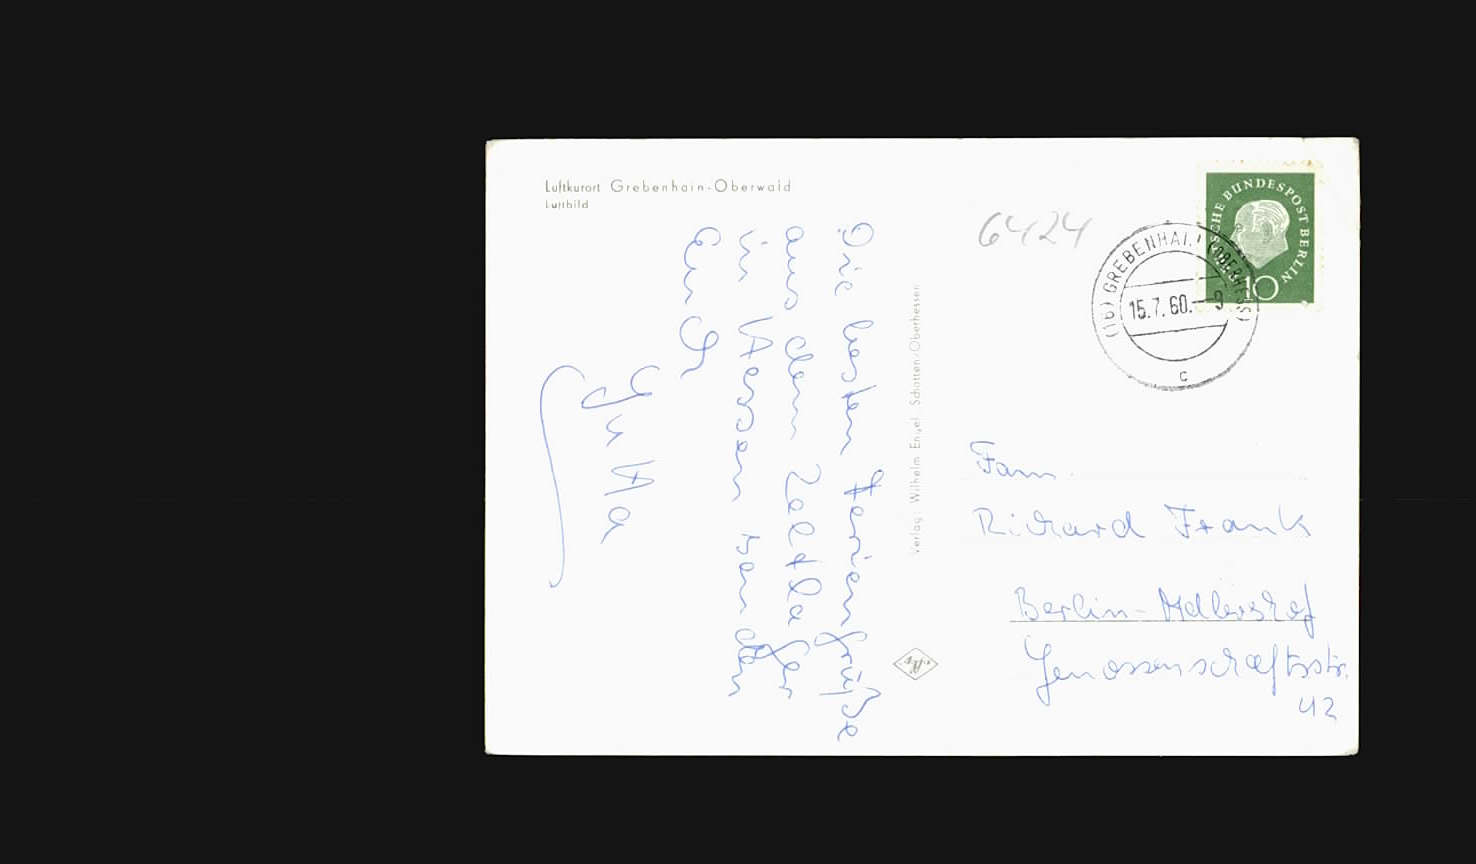 Luftkurort Grebenhain-Oberwald
Luftbild
Die besten Feriengrüße
aus dem Zeltlager
in Hessen senden
Jutta
Verlag: Wilhelm Engel, Schotten/Oberhessen
6424
DEUTSCHE BUNDESPOST BERLIN
10
(16) GREBENHAIN (OBERHESS)
15.7.60.-9
c
Fam.
Richard Frank
Berlin-Adlershof
Genossenschaftsstr.
42